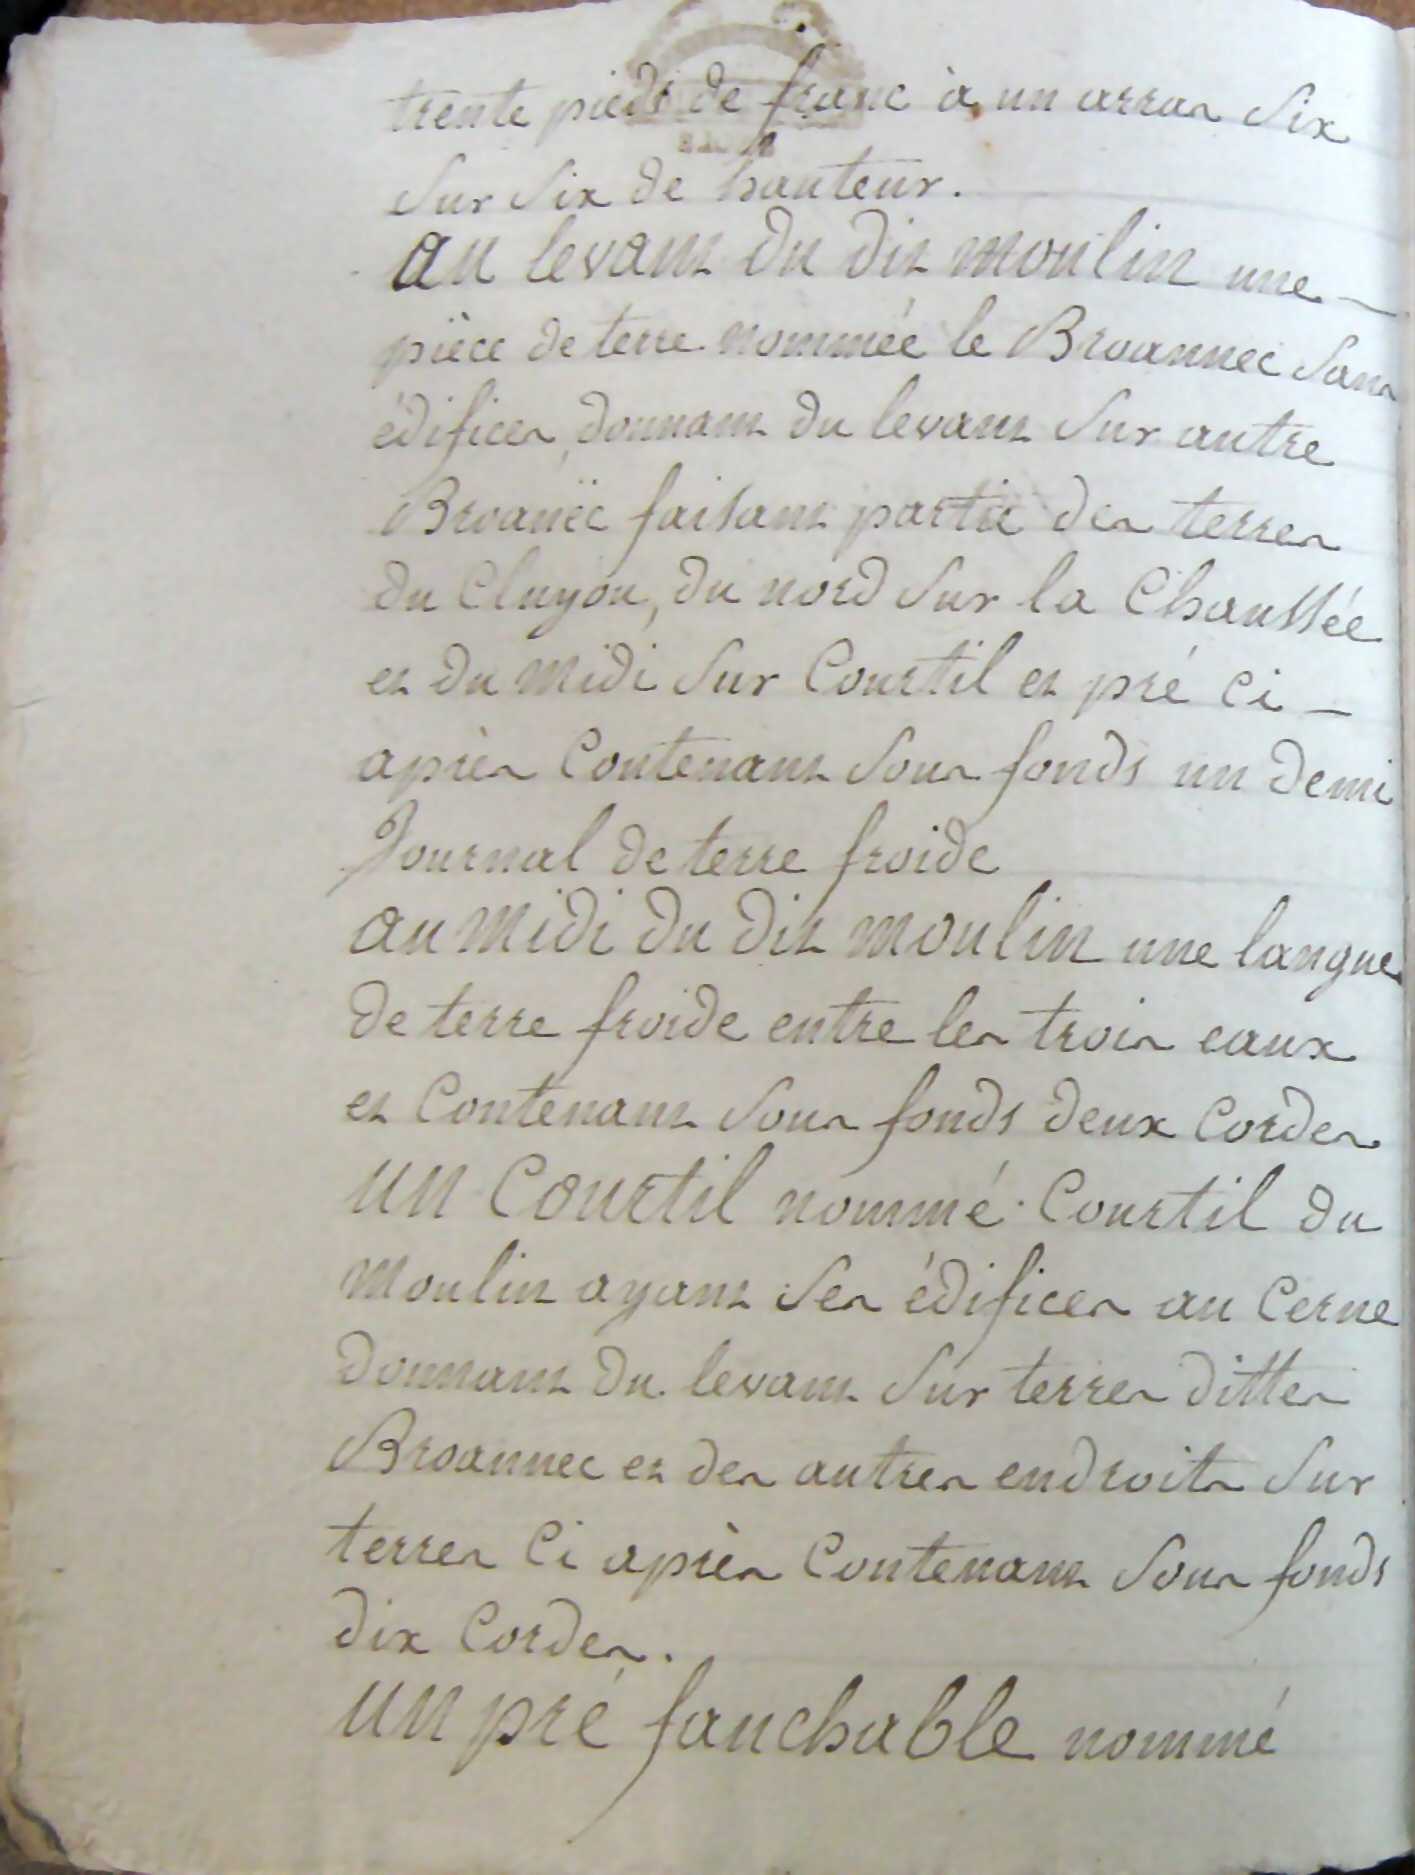 trente pieds de franc à un arras Six
Sur Six de hauteur.
au levant du dit moulin une
pièce de terre nommée le Broannec Sans
édifices, donnant du levant Sur autre
Broanëc faisant partie des terres
du Cluyou, du nord Sur la Chaussée
et du midi Sur Courtil et pré Ci-
après Contenant Sous fonds un demi
Journal de terre froide
au midi du dit moulin une langue
de terre froide entre les trois eaux
et Contenant Sous fonds deux Cordes
un Courtil nommé Courtil du
moulin ayant Ses édifices au Cerne
donnant du levant Sur terres dittes
Broannec et des autres endroits Sur
terres Ci après Contenant Sous fonds
dix Cordes.
un pré fauchable nommé